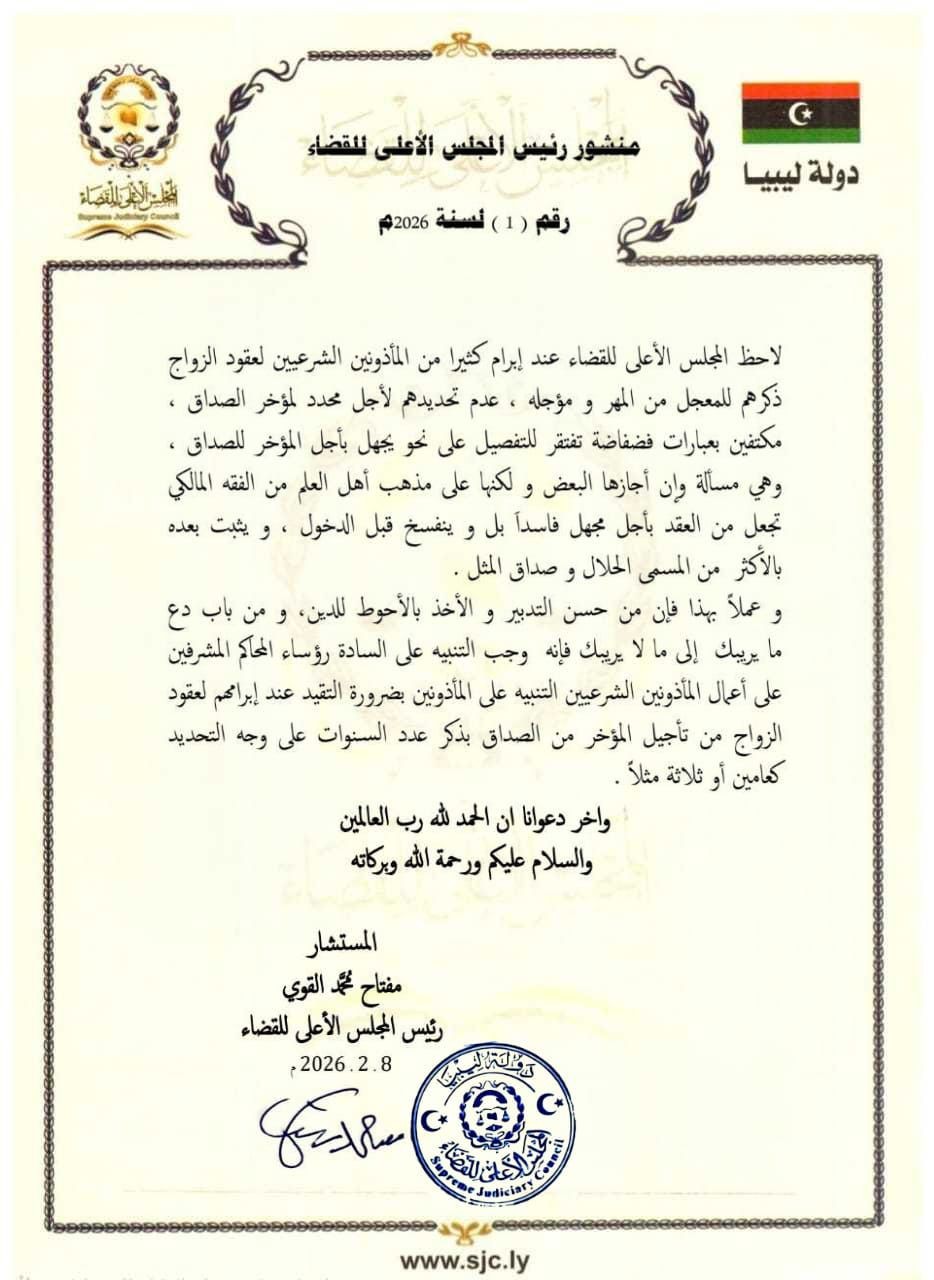 المجلس الأعلى للقضاء
Supreme Judiciary Council
دولة ليبيا
منشور رئيس المجلس الأعلى للقضاء
رقم ( 1 ) لسنة 2026م
لاحظ المجلس الأعلى للقضاء عند إبرام كثيرا من المأذونين الشرعيين لعقود الزواج
ذكرهم للمعجل من المهر و مؤجله ، عدم تحديدهم لأجل محدد لمؤخر الصداق ،
مكتفين بعبارات فضفاضة تفتقر للتفصيل على نحو يجهل بأجل المؤخر للصداق ،
وهي مسألة وإن أجازها البعض و لكنها على مذهب أهل العلم من الفقه المالكي
تجعل من العقد بأجل مجهل فاسداً بل و ينفسخ قبل الدخول ، و يثبت بعده
بالأكثر من المسمى الحلال و صداق المثل .
و عملاً بهذا فإن من حسن التدبير و الأخذ بالأحوط للدين، و من باب دع
ما يريبك إلى ما لا يريبك فإنه وجب التنبيه على السادة رؤساء المحاكم المشرفين
على أعمال المأذونين الشرعيين التنبيه على المأذونين بضرورة التقيد عند إبرامهم لعقود
الزواج من تأجيل المؤخر من الصداق بذكر عدد السنوات على وجه التحديد
كعامين أو ثلاثة مثلاً .
واخر دعوانا ان الحمد لله رب العالمين
والسلام عليكم ورحمة الله وبركاته
المستشار
مفتاح محمَّد القوي
رئيس المجلس الأعلى للقضاء
2026.2.8م
دولة ليبيا
المجلس الأعلى للقضاء
Supreme Judiciary Council
www.sjc.ly